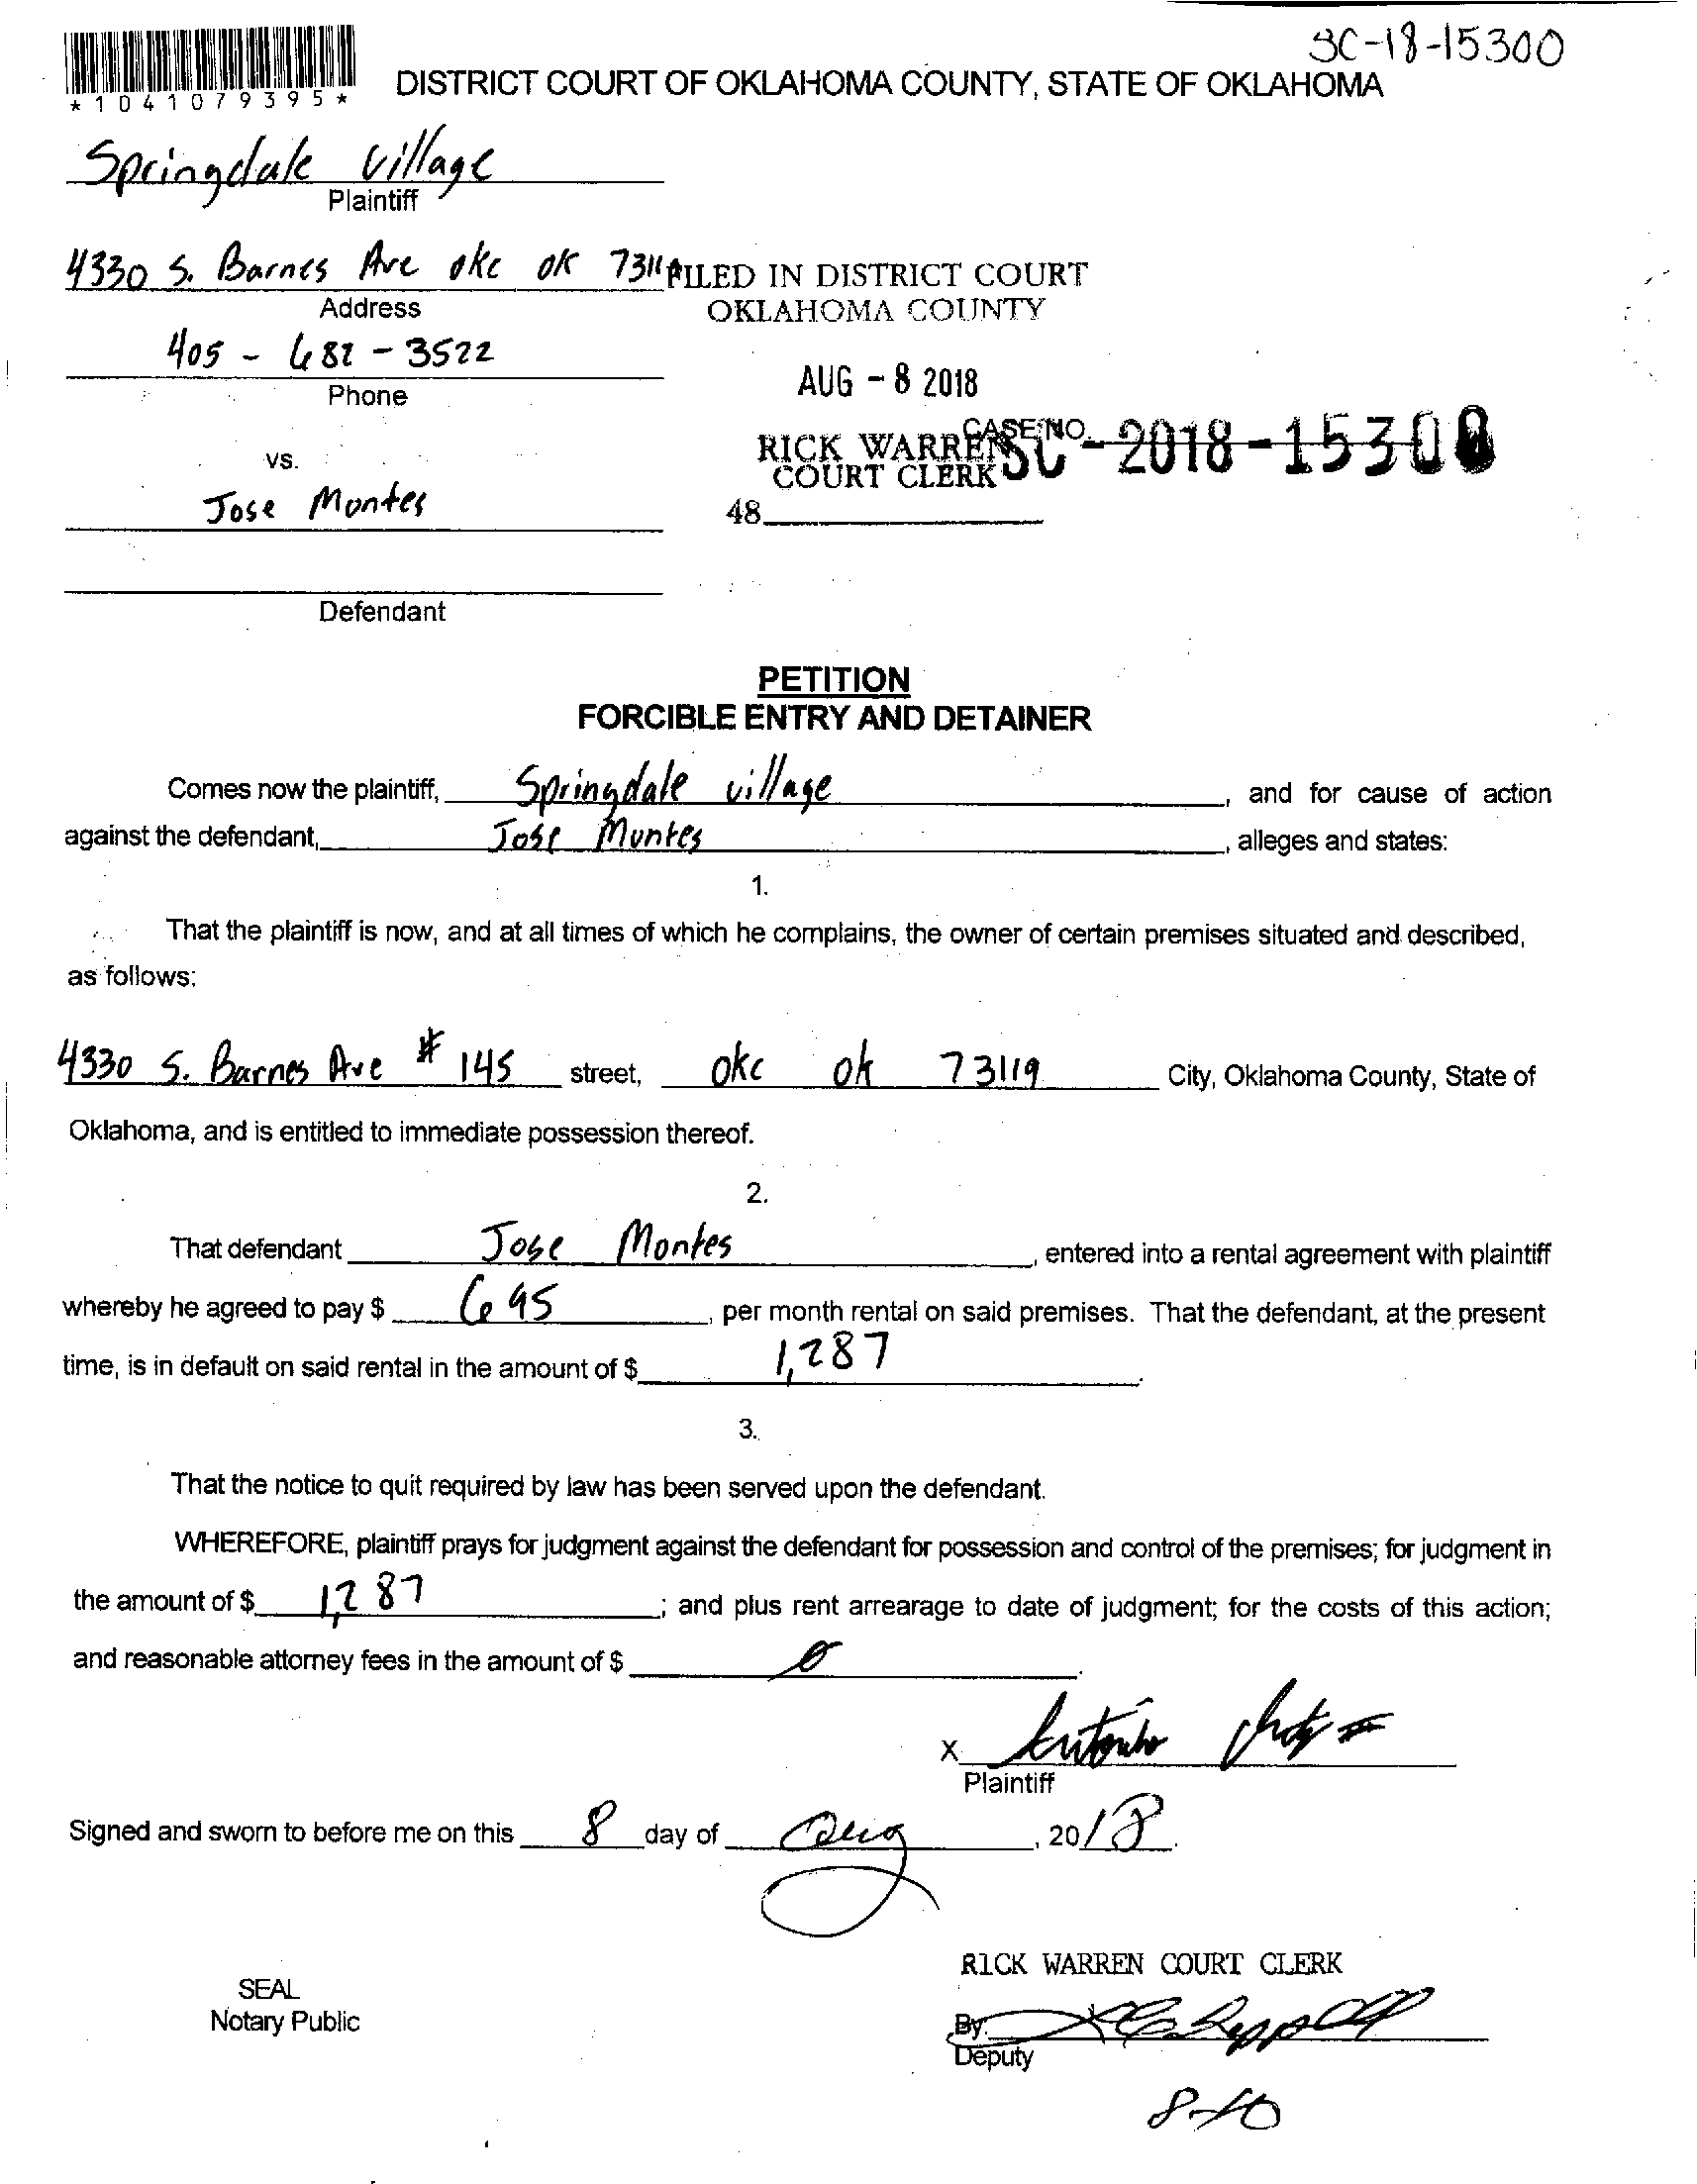 SC-18-15300
*1041079395*
DISTRICT COURT OF OKLAHOMA COUNTY, STATE OF OKLAHOMA
Springdale Village
Plaintiff
4330 S. Barnes Ave okc ok 7311
FILED IN DISTRICT COURT
Address
OKLAHOMA COUNTY
405 - 682 - 3522
Phone
AUG - 8 2018
RICK WARREN
CASE NO.
SC - 2018 - 15300
COURT CLERK
vs.
Jose Montes
48
Defendant
PETITION
FORCIBLE ENTRY AND DETAINER
Comes now the plaintiff, Springdale village, and for cause of action
against the defendant, Jose Montes, alleges and states:
1.
That the plaintiff is now, and at all times of which he complains, the owner of certain premises situated and described,
as follows:
4330 S. Barnes Ave # 145 street, okc ok 73119 City, Oklahoma County, State of
Oklahoma, and is entitled to immediate possession thereof.
2.
That defendant Jose Montes, entered into a rental agreement with plaintiff
whereby he agreed to pay $ 695, per month rental on said premises. That the defendant, at the present
time, is in default on said rental in the amount of $ 1,287.
3.
That the notice to quit required by law has been served upon the defendant.
WHEREFORE, plaintiff prays for judgment against the defendant for possession and control of the premises; for judgment in
the amount of $ 1,287; and plus rent arrearage to date of judgment; for the costs of this action;
and reasonable attorney fees in the amount of $ 0.
X
Plaintiff
Signed and sworn to before me on this 8 day of Aug, 2018.
RICK WARREN COURT CLERK
SEAL
Notary Public
By:
Deputy
8-10